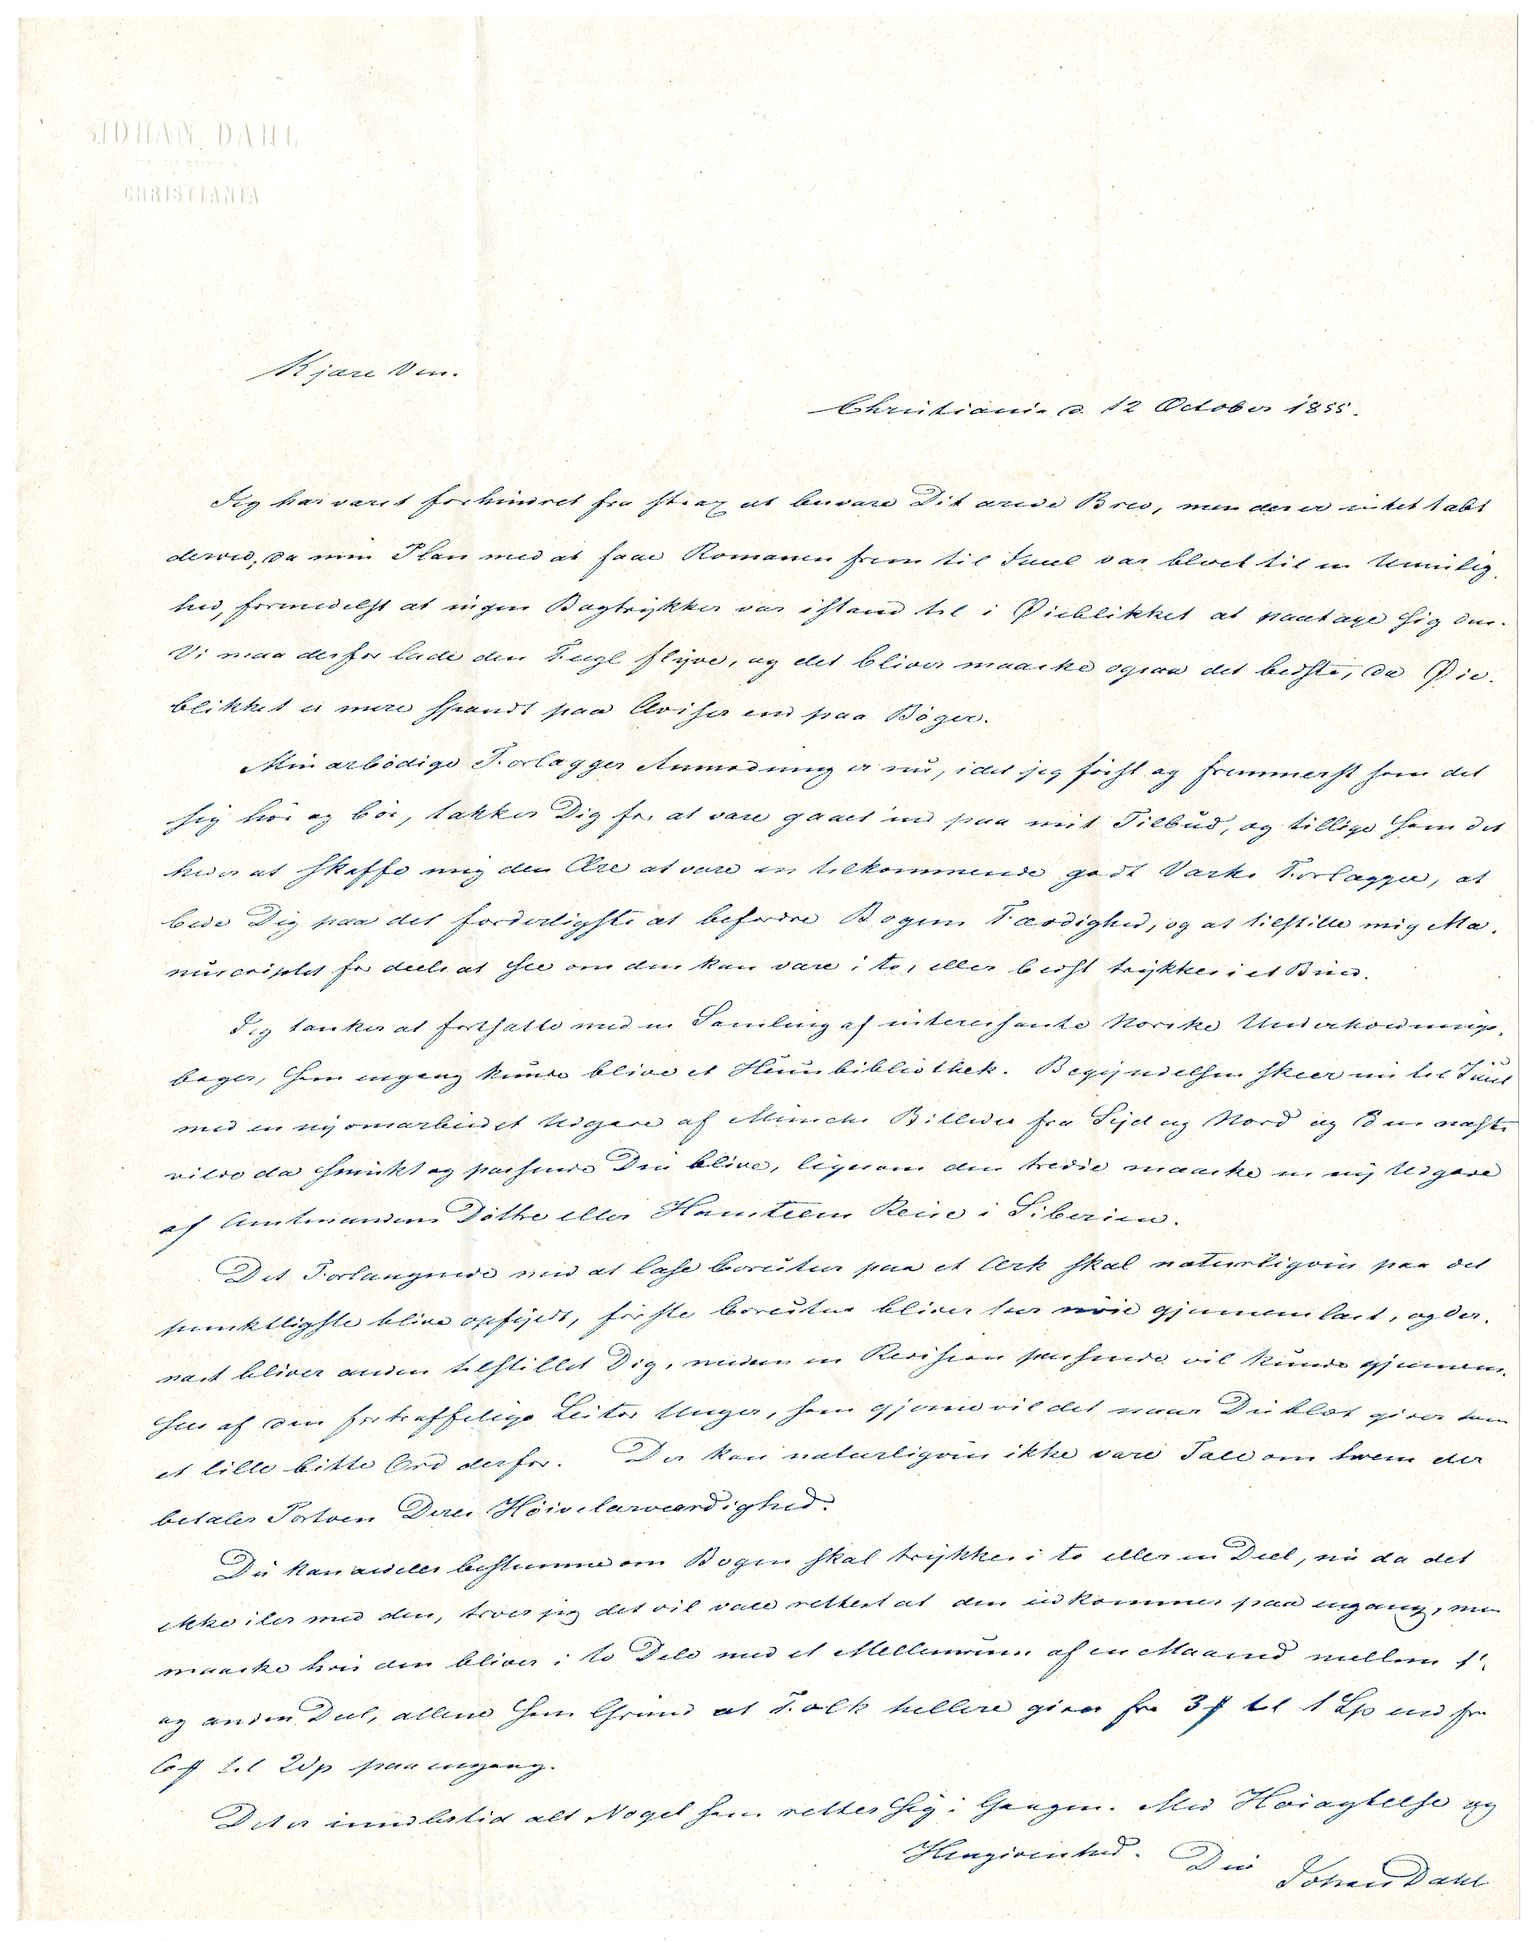 JOHAN DAHL
CHRISTIANIA
Kjære Ven.
Christiania d. 12 October 1855.
Jeg har været forhindret fra strax at besvare Dit ærede Brev, men der er intet tabt
derved, da min Plan med at faae Romanen frem til Juul var blevet til en Umulig-
hed, formedelst at ingen Bogtrykker var istand til i Øieblikket at paatage sig den.
Vi maa derfor lade den Fugl flyve, og det bliver maaske ogsaa det bedste, da Øie-
blikket er mere spændt paa Aviser end paa Bøger.
Min ærbødige Forlægger Anmodning er nu, idet jeg først og fremmerst som det
sig hør og bør, takker Dig for at være gaaet ind paa mit Tilbud, og tillige som det
heder at skaffe mig den Ære at være en tilkommende godt Værks Forlægger, at
bede Dig paa det forderligste at befordre Bogens Færdighed, og at tilstille mig Ma-
nuscriptet for deels at see om den kan være i to, eller bedst trykkes i et Bind.
Jeg tænker at fortsætte med en Samling af interessante Norske Underholdnings-
bøger, som engang kunde blive et Huusbibliothek. Begyndelsen skeer nu til Juul
med en ny omarbeidet Udgave af Munchs Billeder fra Syd og Nord og den næste
vilde da smukt og passende Din blive, ligesom den tredie maaske en ny Udgave
af Amtmandens Døttre eller Hansteens Reise i Siberien.
Det Forlangende med at læse Correctur paa et Ark skal naturligviis paa det
punktligste blive opfyldt, første Correctur bliver her nøie gjennemlæst, og der-
næst bliver anden tilstillet Dig, medens en Revision passende vil kunde gjennem-
sees af den fortræffelige Lector Unger, som gjerne vil det naar Du blot giver ham
et lille bitte Ord derfor. Der kan naturligviis ikke være Tale om hvem der
betaler Portoen Deres Høivelærværdighed.
Du kan aldeles bestemme om Bogen skal trykkes i to eller en Deel, nu da det
ikke iler med den, troer jeg det vil være rettest at den udkommer paa engang, men
maaske hvis den bliver i to Dele med et Mellemrum af en Maaned mellem 1ste
og anden Deel, allene som Grund at Folk hellere giver fra 3 til 1 Sp end fra
til 2 Sp paa engang.
Det er imidlertid alt Noget som retter sig i Gangen. Med Høiagtelse og
Hengivenhed. Din Johan Dahl